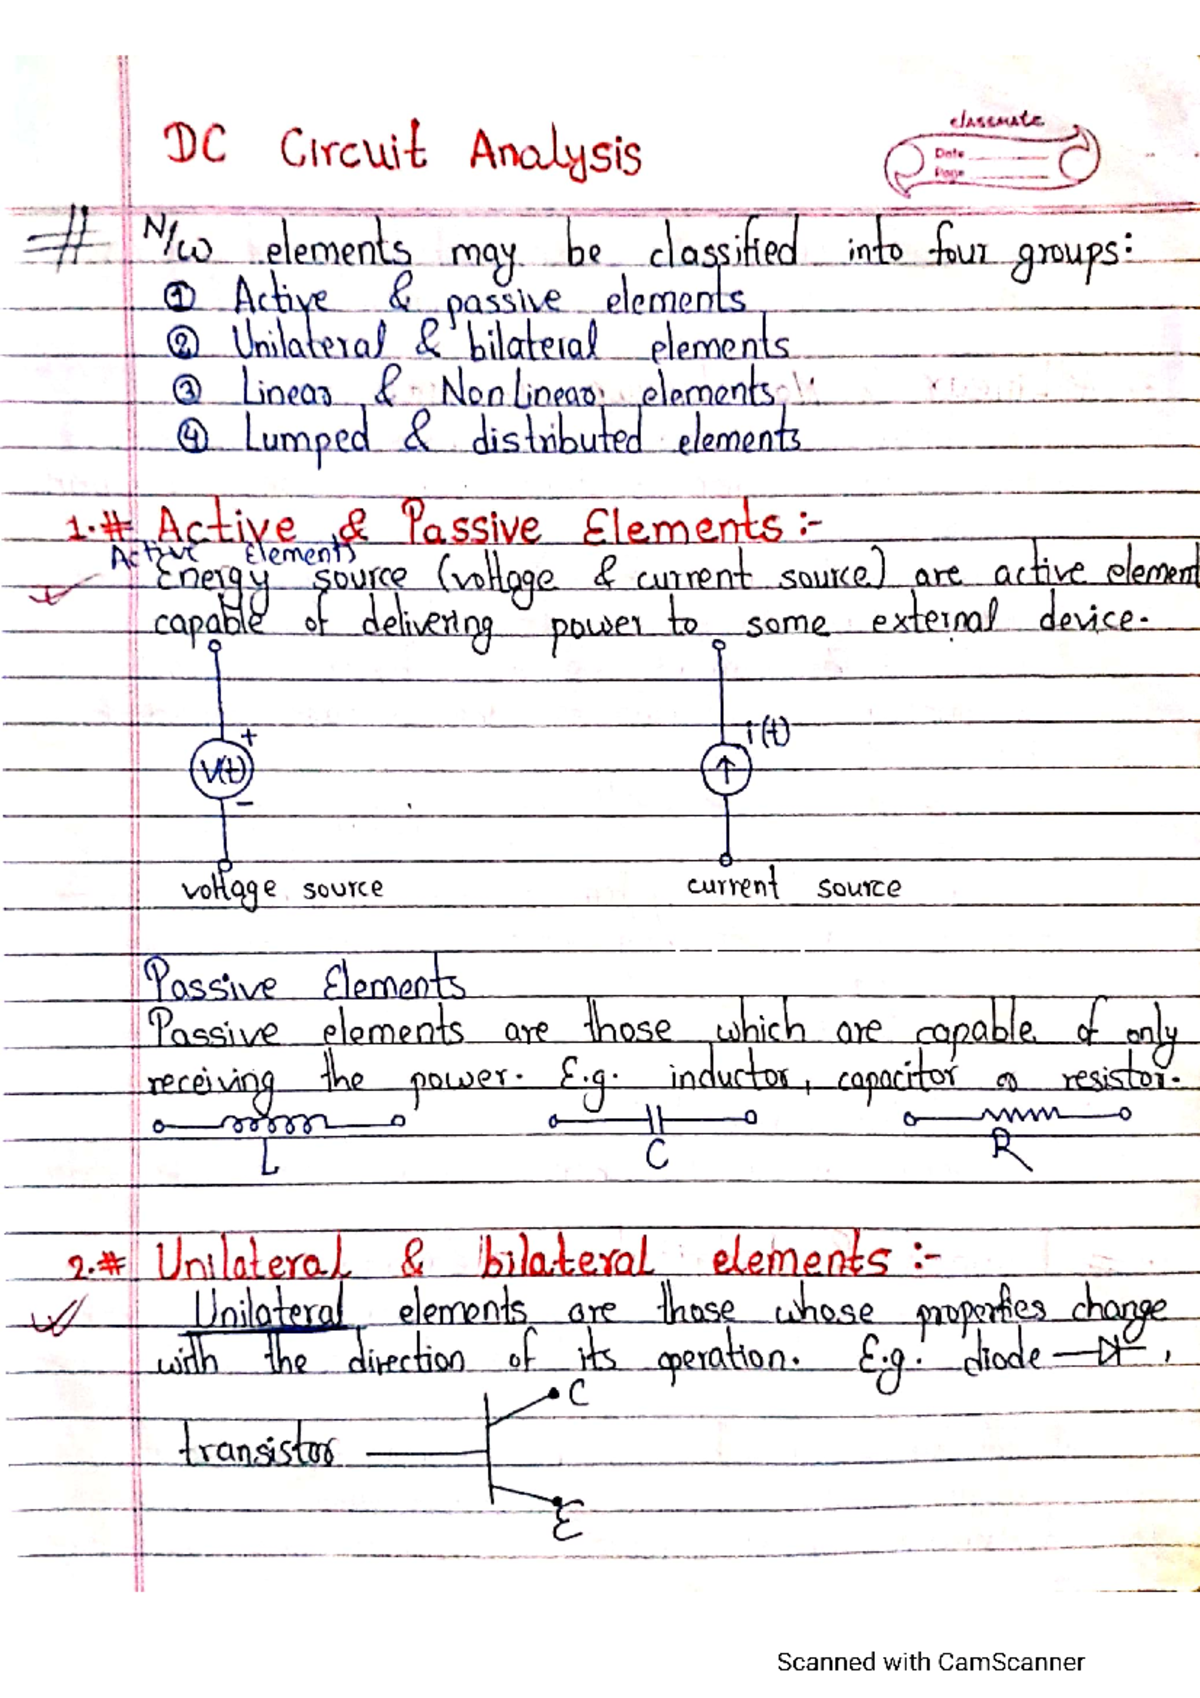 DC Circuit Analysis
classmate
Date
Page
# N/W elements may be classified into four groups:
① Active & passive elements
② Unilateral & bilateral elements
③ Linear & Non Linear elements
④ Lumped & distributed elements
1.# Active & Passive Elements :-
Active Elements
Energy source (voltage & current source) are active element
capable of delivering power to some external device.
+
V(t)
-
i(t)
voltage source
current source
Passive Elements
Passive elements are those which are capable of only
receiving the power. E.g. inductor, capacitor or resistor.
L C R
2.# Unilateral & bilateral elements :-
Unilateral elements are those whose properties change
with the direction of its operation. E.g. diode ,
C
transistor
E
Scanned with CamScanner